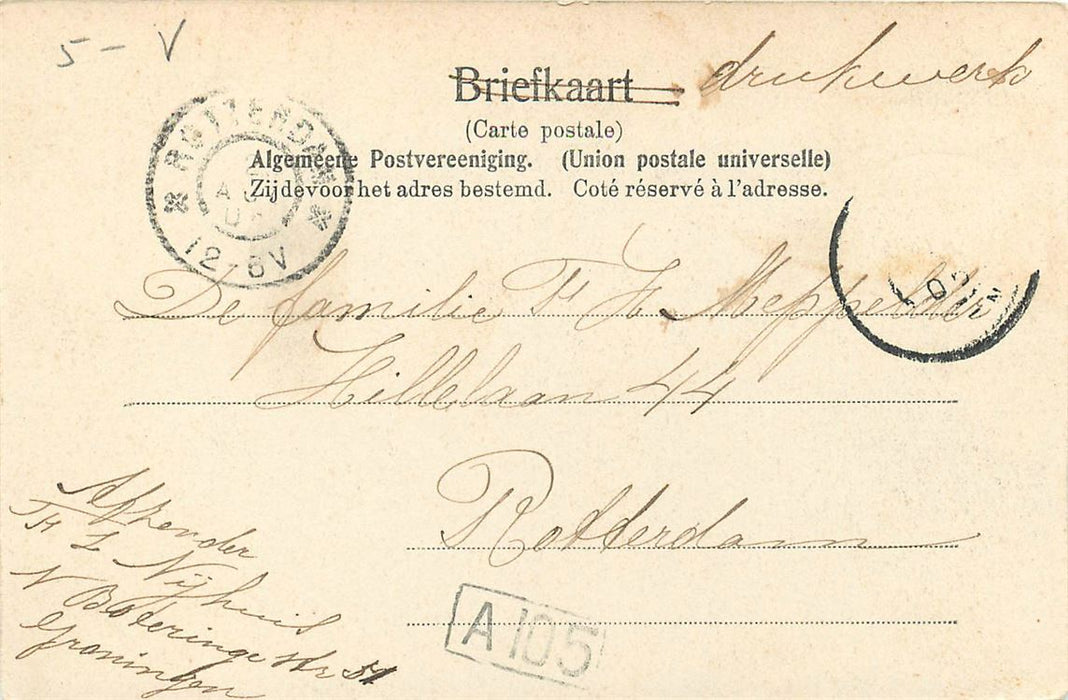 5- V
Briefkaart drukwerk
(Carte postale)
Algemeene Postvereeniging. (Union postale universelle)
Zijde voor het adres bestemd. Coté réservé à l'adresse.
ROTTERDAM
12-6V
De familie H. Meppelder
Hillelaan 44
Rotterdam
Afzender
Nijhuis
N Boteringe str 51
Groningen
A 105